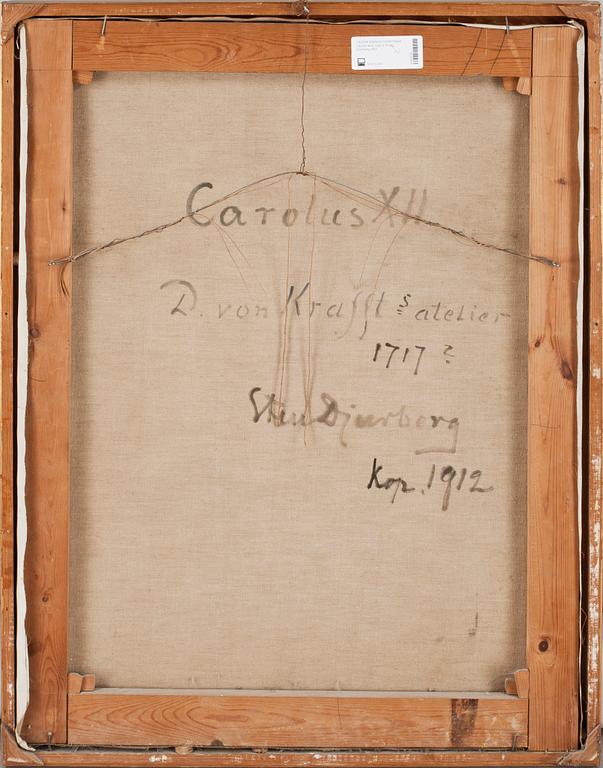 Carolus XII.
D. von Kraffts atelier
1717?
Sten Djurberg
Kop. 1912